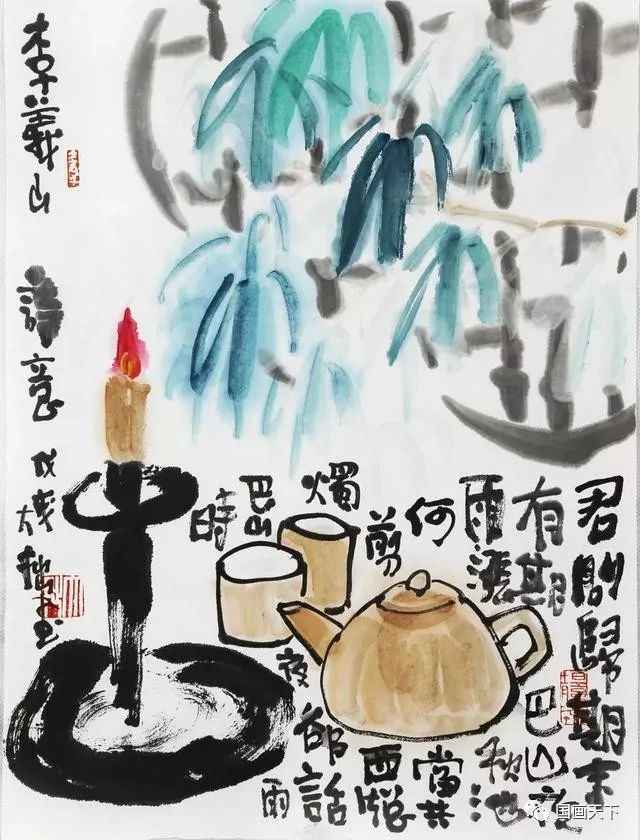 君問歸期未
有期巴山夜
雨漲秋池
何當共
剪西牕
燭卻話
巴山夜雨
時
李義山詩意戊戌
国画天下